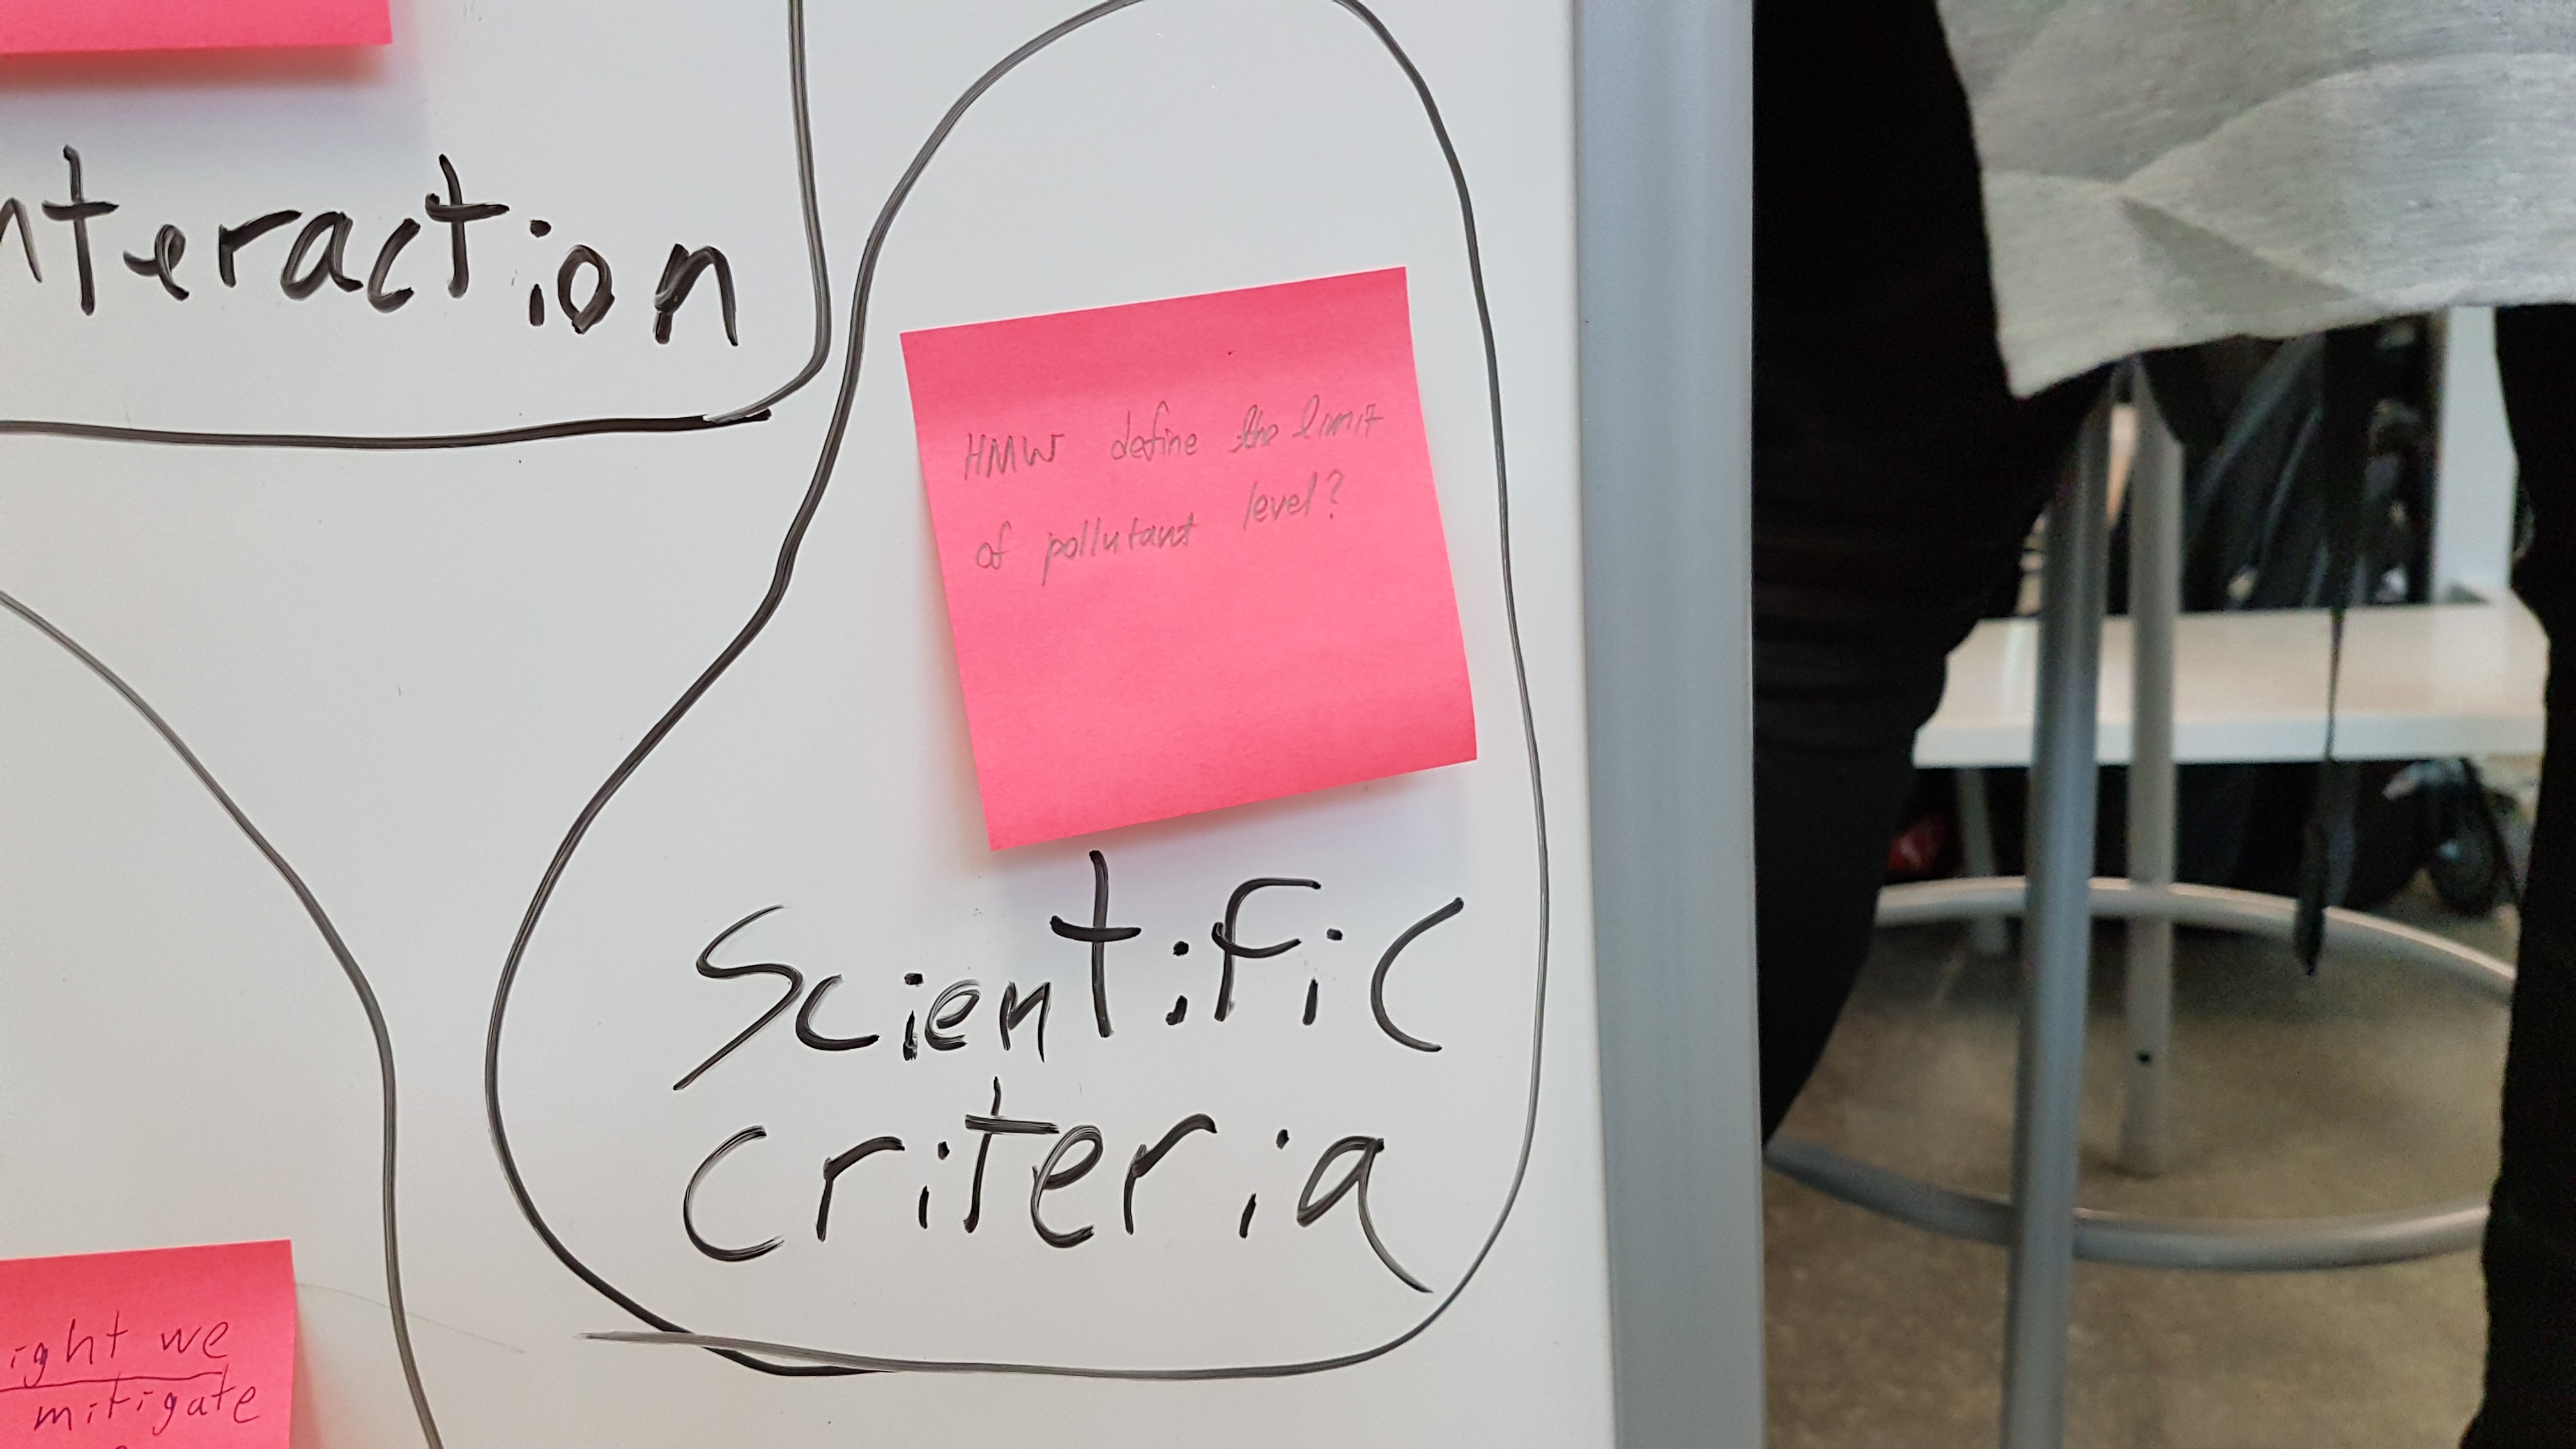 nteraction
HMW define the limit
of pollutant level?
Scientific
criteria
ight we
mitigate